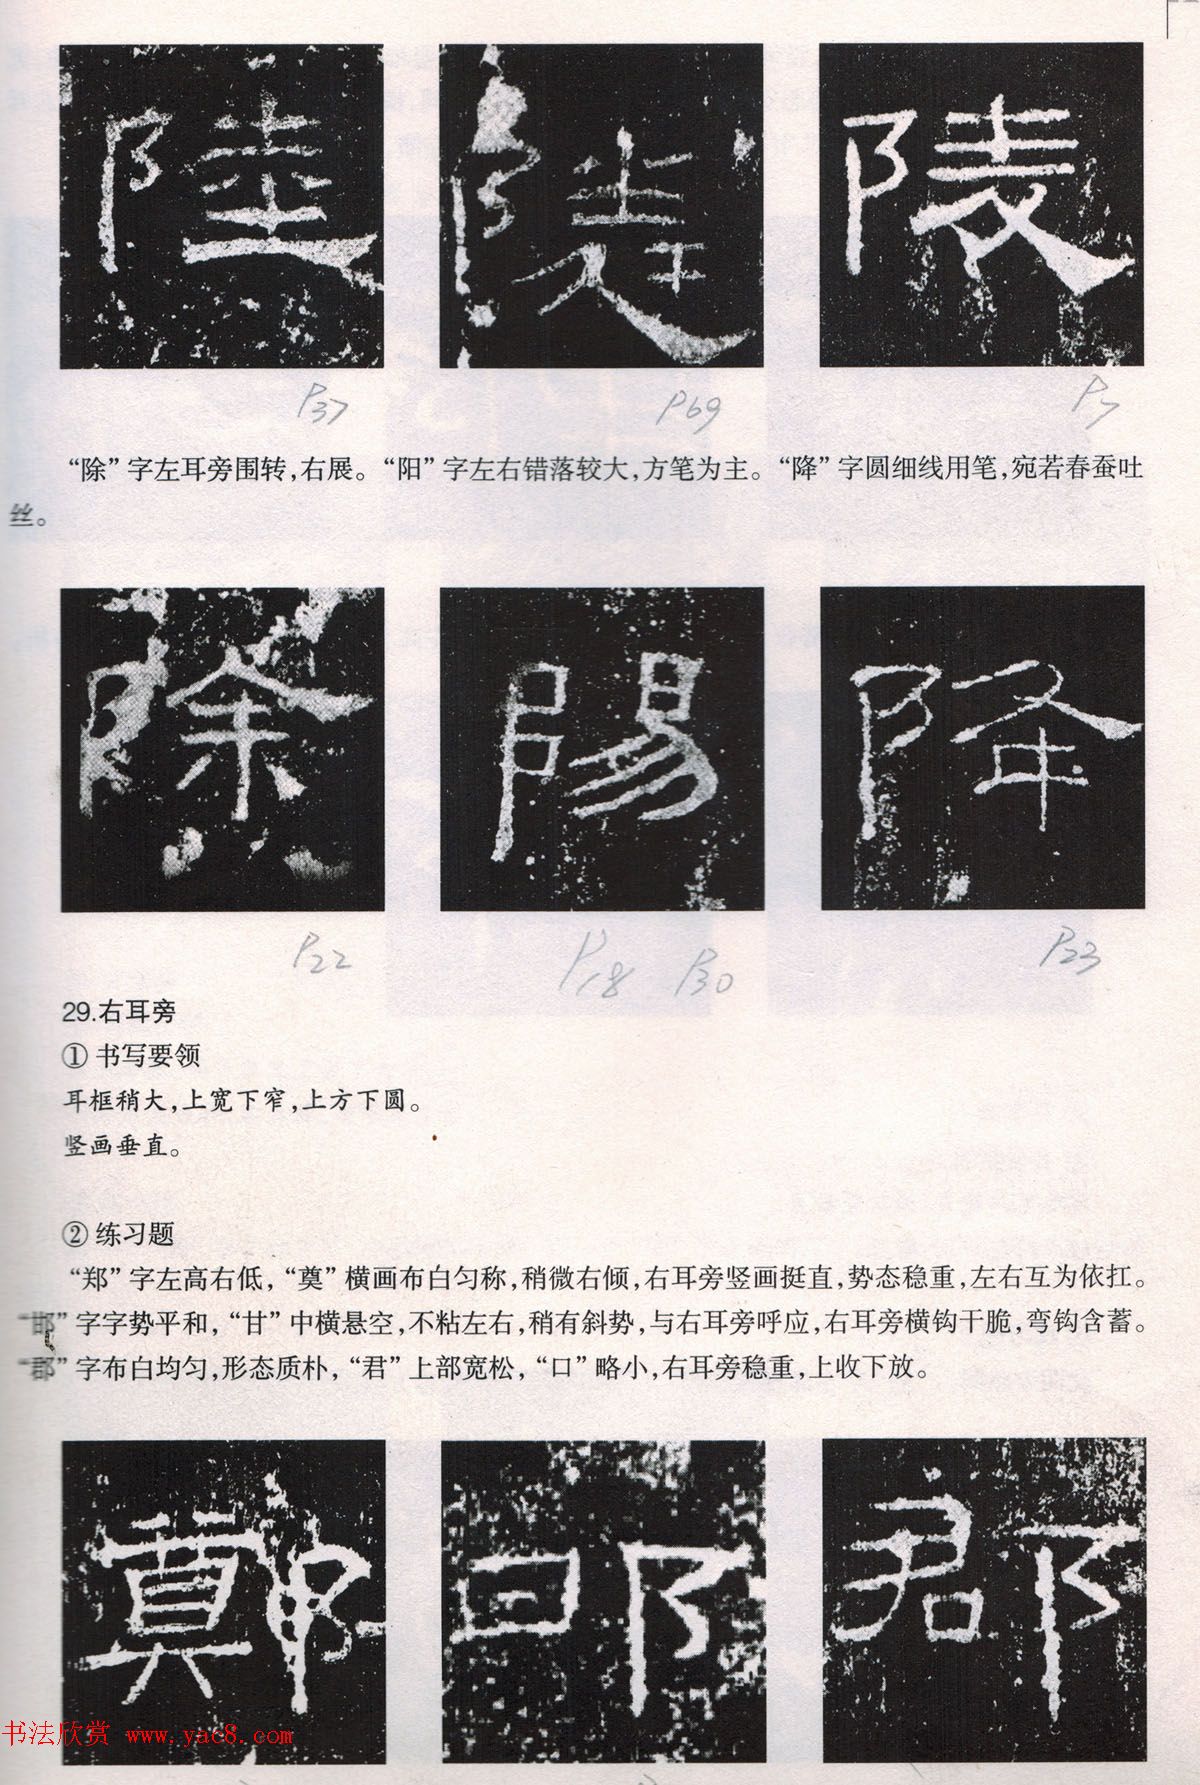 陸 陵
P37 P69 P7
“除”字左耳旁围转,右展。“阳”字左右错落较大,方笔为主。“降”字圆细线用笔,宛若春蚕吐
丝。
除 陽 降
P22 P18 P30 P23
29.右耳旁
① 书写要领
耳框稍大,上宽下窄,上方下圆。
竖画垂直。
② 练习题
“郑”字左高右低,“奠”横画布白匀称,稍微右倾,右耳旁竖画挺直,势态稳重,左右互为依扛。
“邯”字字势平和,“甘”中横悬空,不粘左右,稍有斜势,与右耳旁呼应,右耳旁横钩干脆,弯钩含蓄。
“郡”字布白均匀,形态质朴,“君”上部宽松,“口”略小,右耳旁稳重,上收下放。
鄭 邯 郡
书法欣赏 www.yac8.com